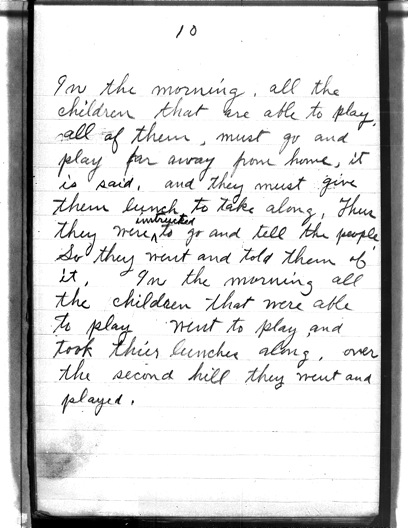 10
In the morning, all the
children that are able to play,
all of them, must go and
play far away from home, it
is said, and they must give
them lunch to take along, Thus
they were instructed to go and tell the people
So they went and told them of
it. In the morning all
the children that were able
to play went to play and
took thier lunches along, over
the second hill they went and
played.